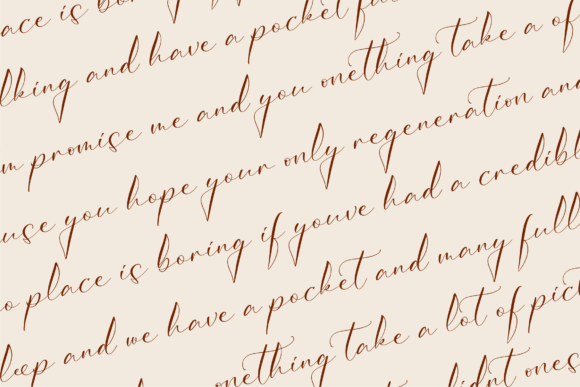 ace is boring
lking and have a pocket fu
m promise me and you onething take a of
use you hope your only regeneration and
o place is boring if youve had a credibl
leep and we have a pocket and many full
onething take a lot of pict
didnt ones